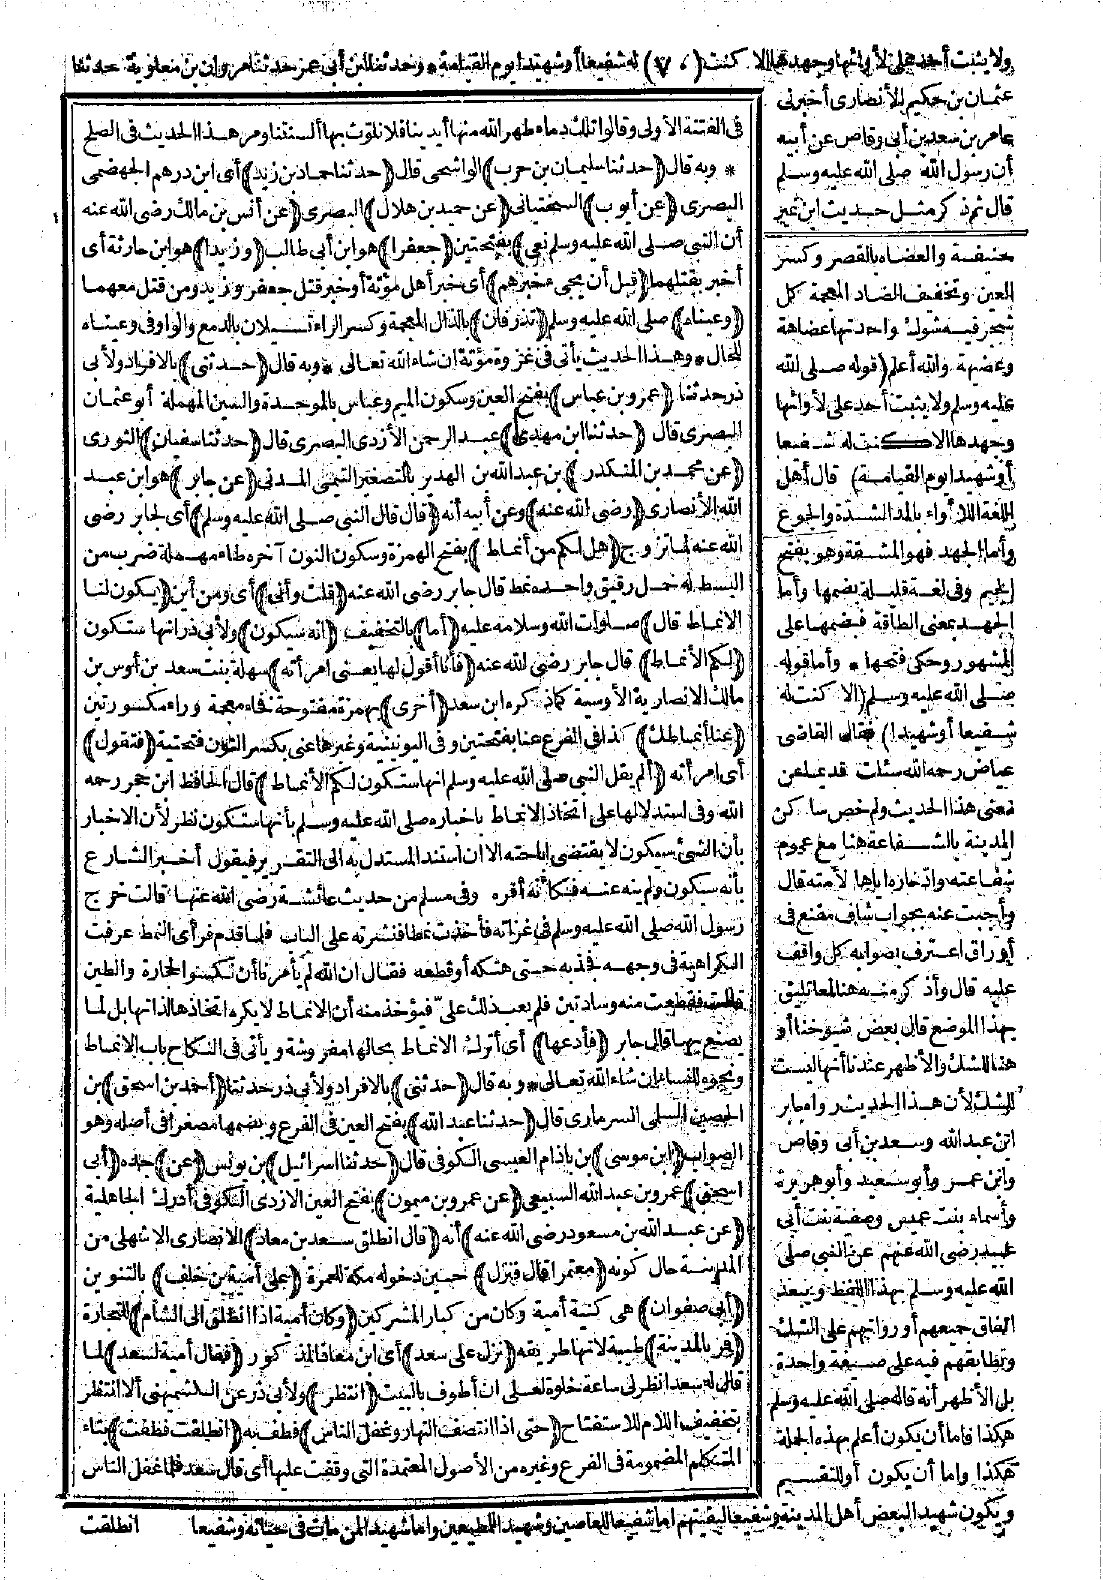 ولا يثبت أحد على لأوائها وجهدها الا كنت (٧٠) له شفيعا أو شهيدا يوم القيامة * وحدثنا ابن أبى عمر حدثنا مروان بن معاوية حدثنا
عثمان بن حكيم الأنصارى أخبرنى
عامر بن سعد بن أبى وقاص عن أبيه
أن رسول الله صلى الله عليه وسلم
قال ثم ذكر مثل حديث ابن نمير
خفيفة والعضاه بالقصر وكسر
العين وتخفيف الضاد المعجمة كل
شجر فيه شوك واحدتها عضاهة
وعضيهة والله أعلم (قوله صلى الله
عليه وسلم ولا يثبت أحد على لأوائها
وجهدها الا كنت له شفيعا
أو شهيدا يوم القيامة) قال أهل
اللغة اللأواء بالمد الشدة والجوع
وأما الجهد فهو المشقة وهو بفتح
الجيم وفى لغة قليلة بضمها وأما
الجهد بمعنى الطاقة فبضمها على
المشهور وحكى فتحها * وأما قوله
صلى الله عليه وسلم (الا كنت له
شفيعا أو شهيدا) فقال القاضى
عياض رحمه الله سئلت قديما عن
معنى هذا الحديث ولم خص ساكن
المدينة بالشفاعة هنا مع عموم
شفاعته وادخاره اياها لأمته قال
وأجبت عنه بجواب شاف مقنع فى
أوراق اعترف بصوابه كل واقف
عليه قال وأذكر منه هنا لمعا تليق
بهذا الموضع قال بعض شيوخنا أو
هنا للشك والأظهر عندنا أنها ليست
للشك لأن هذا الحديث رواه جابر
ابن عبد الله وسعد بن أبى وقاص
وابن عمر وأبو سعيد وأبو هريرة
وأسماء بنت عميس وصفية بنت أبى
عبيد رضى الله عنهم عن النبى صلى
الله عليه وسلم بهذا اللفظ ويبعد
اتفاق جميعهم أو رواتهم على الشك
وتطابقهم فيه على صيغة واحدة
بل الأظهر أنه قاله صلى الله عليه وسلم
هكذا فاما أن يكون أعلم بهذه الجملة
هكذا واما أن يكون أو للتقسيم
ويكون شهيدا لبعض أهل المدينة وشفيعا لبقيتهم اما شفيعا للعاصين وشهيدا للمطيعين واما شهيدا لمن مات فى حياته وشفيعا
فى الفتنة الأولى وقالوا تلك دماء طهر الله منها أيدينا فلا نلوث بها ألسنتنا ومر هذا الحديث فى الصلح
* وبه قال (حدثنا سليمان بن حرب) الواشحى قال (حدثنا حماد بن زيد) أى ابن درهم الجهضمى
البصرى (عن أيوب) السختيانى (عن حميد بن هلال) البصرى (عن أنس بن مالك رضى الله عنه
أن النبى صلى الله عليه وسلم نعى) بفتحتين (جعفرا) هو ابن أبى طالب (وزيدا) هو ابن حارثة أى
أخبر بقتلهما (قبل أن يجىء خبرهم) أى خبر أهل مؤتة أو خبر قتل جعفر وزيد ومن قتل معهما
(وعيناه) صلى الله عليه وسلم (تذرفان) بالذال المعجمة وكسر الراء تسيلان بالدمع والواو فى وعيناه
للحال * وهذا الحديث يأتى فى غزوة مؤتة ان شاء الله تعالى * وبه قال (حدثنى) بالافراد ولأبى
ذر حدثنا (عمرو بن عباس) بفتح العين وسكون الميم وعباس بالموحدة والسين المهملة أبو عثمان
البصرى قال (حدثنا ابن مهدى) عبد الرحمن الأزدى البصرى قال (حدثنا سفيان) الثورى
(عن محمد بن المنكدر) بن عبد الله بن الهدير بالتصغير التيمى المدنى (عن جابر) هو ابن عبد
الله الأنصارى (رضى الله عنه) وعن أبيه أنه (قال قال النبى صلى الله عليه وسلم) أى لجابر رضى
الله عنه لما تزوج (هل لكم من أنماط) بفتح الهمزة وسكون النون آخره طاء مهملة ضرب من
البسط له خمل رقيق واحده نمط قال جابر رضى الله عنه (قلت وأنى) أى ومن أين (يكون لنا
الانماط قال) صلوات الله وسلامه عليه (أما) بالتخفيف (انه سيكون) ولأبى ذر انها ستكون
(لكم الأنماط) قال جابر رضى الله عنه (فأنا أقول لها يعنى امرأته) سهلة بنت سعد بن أوس بن
مالك الانصارية الأوسية كما ذكره ابن سعد (أخرى) بهمزة مفتوحة فخاء معجمة وراء مكسورتين
(عنا أنماطك) كذا فى الفرع عنا بفتحتين وفى اليونينية وغيرها عنى بكسر النون فتحتية (فتقول)
أى امرأته (ألم يقل النبى صلى الله عليه وسلم انها ستكون لكم الأنماط) قال الحافظ ابن حجر رحمه
الله وفى استدلالها على اتخاذ الانماط باخباره صلى الله عليه وسلم بأنها ستكون نظر لأن الاخبار
بأن الشىء سيكون لا يقتضى اباحته الا ان استند المستدل به الى التقرير فيقول أخبر الشارع
بأنه سيكون ولم ينه عنه فكأنه أقره وفى مسلم من حديث عائشة رضى الله عنها قالت خرج
رسول الله صلى الله عليه وسلم فى غزاته فأخذت نمطا فنشرته على الباب فلما قدم فرأى النمط عرفت
الكراهية فى وجهه فجذبه حتى هتكه أو قطعه فقال ان الله لم يأمرنا أن نكسو الحجارة والطين
قالت فقطعت منه وسادتين فلم يعب ذلك علىّ فيؤخذ منه أن الانماط لا يكره اتخاذها لذاتها بل لما
يصنع بها قال جابر (فأدعها) أى أترك الانماط بحالها مفروشة ويأتى فى النكاح باب الانماط
ونحوه للنساء ان شاء الله تعالى * وبه قال (حدثنى) بالافراد ولأبى ذر حدثنا (أحمد بن اسحق) بن
الحصين السلمى السرمارى قال (حدثنا عبد الله) بفتح العين فى الفرع وبضمها مصغرا فى أصله وهو
الصواب (ابن موسى) بن باذام العبسى الكوفى قال (حدثنا اسرائيل) بن يونس (عن) جده (أبى
اسحق) عمرو بن عبد الله السبيعى (عن عمرو بن ميمون) بفتح العين الازدى الكوفى أدرك الجاهلية
(عن عبد الله بن مسعود رضى الله عنه) أنه (قال انطلق سعد بن معاذ) الانصارى الاشهلى من
المدينة حال كونه (معتمرا قال فنزل) حين دخوله مكة للعمرة (على أمية بن خلف) بالتنوين
(أبى صفوان) هى كنية أمية وكان من كبار المشركين (وكان أمية اذا انطلق الى الشأم) للتجارة
(فمر بالمدينة) طيبة لانها طريقه (نزل على سعد) أى ابن معاذ المذكور (فقال أمية لسعد) لما
قال له سعد انظر لى ساعة خلوة لعلى ان أطوف بالبيت (انتظر) ولأبى ذر عن الكشميهنى ألا انتظر
بتخفيف اللام للاستفتاح (حتى اذا انتصف النهار وغفل الناس) فطف به (انطلقت فطفت) بتاء
المتكلم المضمومة فى الفرع وغيره من الأصول المعتمدة التى وقفت عليها أى قال سعد فلما غفل الناس
انطلقت